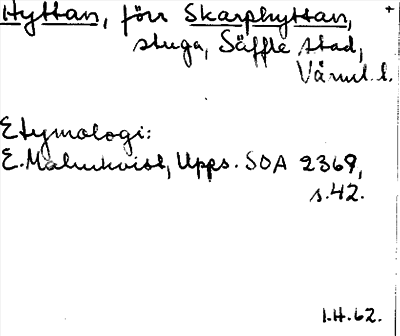 Hyttan, förr Skarphyttan, +
stuga, Säffle stad,
Värml. l.
Etymologi:
E. Malmkvist, Upps. SOA 2369,
s. 42.
I.H. 62.